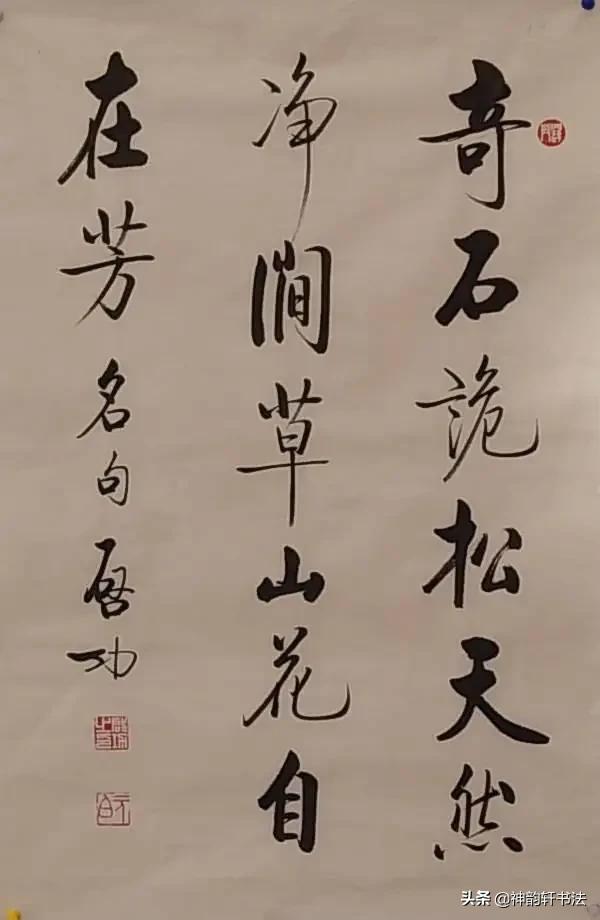 奇石詭松天然
净澗草山花自
在芳 名句 啓功
头条 @神韵轩书法